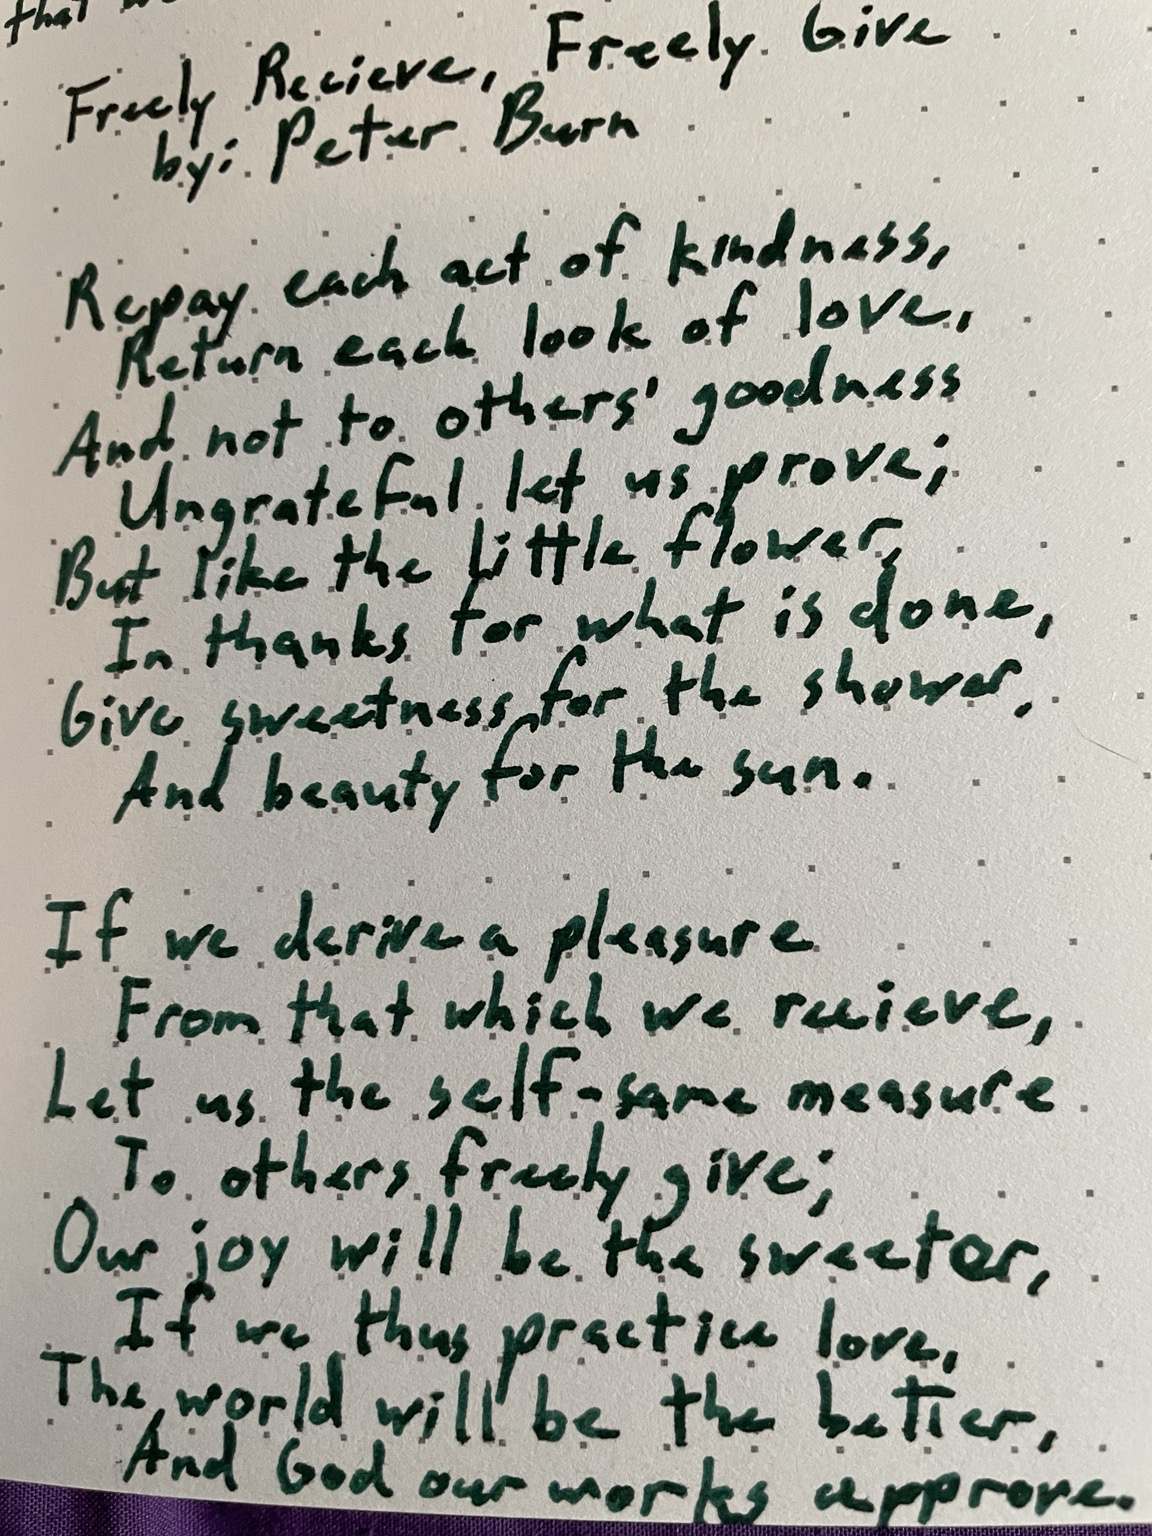 that we
Freely Recieve, Freely Give
by: Peter Burn
Repay each act of kindness,
Return each look of love,
And not to others' goodness
Ungrateful let us prove;
But like the little flower,
In thanks for what is done,
Give sweetness for the shower,
And beauty for the sun.
If we derive a pleasure
From that which we recieve,
Let us the self-same measure
To others freely give;
Our joy will be the sweeter,
If we thus practice love,
The world will be the better,
And God our works approve.